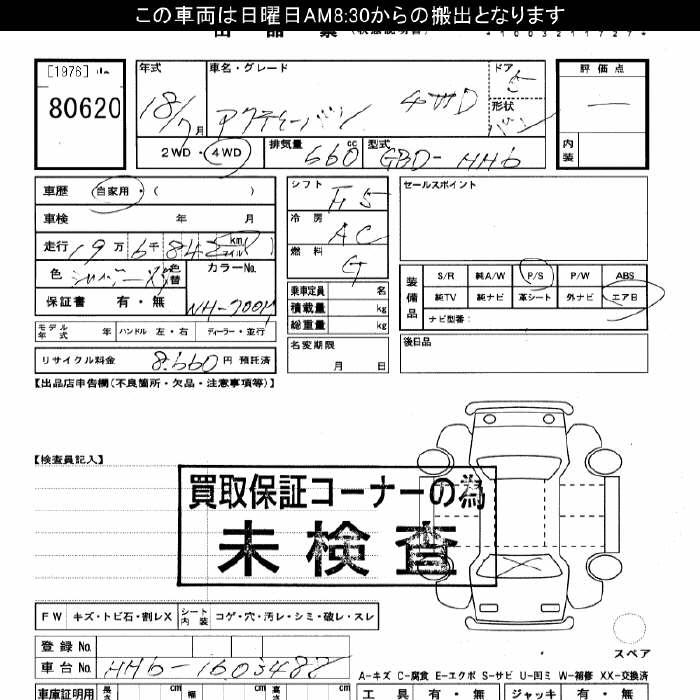 この車両は日曜日AM8:30からの搬出となります
[1976]
80620
年式
車名・グレード
ドア
5
評価点
18/7月
アクティーバン
4WD
形状
バン
内装
2WD・4WD
排気量 660 cc
型式 GBD-HH6
車歴 自家用・( )
シフト F5
セールスポイント
車検 年 月
冷房 AC
走行 19万6千84 km マイル
燃料 G
色
色替
カラーNo.
NH-700M
保証書 有・無
乗車定員 名
積載量 kg
総重量 kg
装備品
S/R 純A/W P/S P/W ABS
純TV 純ナビ 革シート 外ナビ エアB
ナビ型番:
モデル年式 年 ハンドル 左・右 ディーラー・並行
名変期限 月 日
後日品
リサイクル料金 8.660円 預託済
【出品店申告欄(不良箇所・欠品・注意事項等)】
【検査員記入】
買取保証コーナーの為
未検査
FW キズ・トビ石・割レX シート内装 コゲ・穴・汚レ・シミ・破レ・スレ
スペア
登録No.
車台No. HH6-1603487
A-キズ C-腐食 E-エクボ S-サビ U-凹ミ W-補修 XX-交換済
車庫証明用 長さ cm 幅 cm 高さ cm
工具 有・無 ジャッキ 有・無